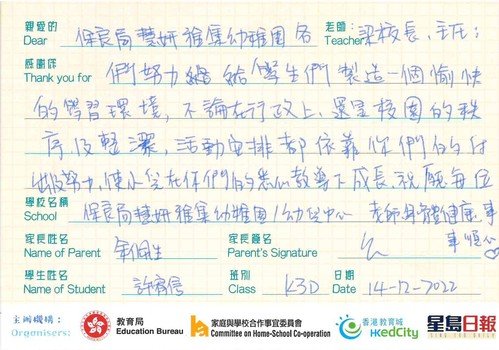 親愛的 保良局慧妍雅集幼稚園各 老師：梁校長、主任：
Dear Teacher
感謝你 們努力繼給學生們製造一個愉快
Thank you for
的學習環境，不論在行政上，還是校園的秩
序及整潔，活動安排都依靠你們的付
出及努力，使小兒在你們的悉心教導下成長，祝願每位
學校名稱 保良局慧妍雅集幼稚園/幼兒中心 老師身體健康，事
School 事順心
家長姓名 家長簽名
Name of Parent Parent's Signature
學生姓名 班別 K3D 日期 14-12-2022
Name of Student Class Date
主辦機構： 教育局 家庭與學校合作事宜委員會 香港教育城 星島日報
Organisers: Education Bureau Committee on Home-School Co-operation HKedCity SING TAO DAILY